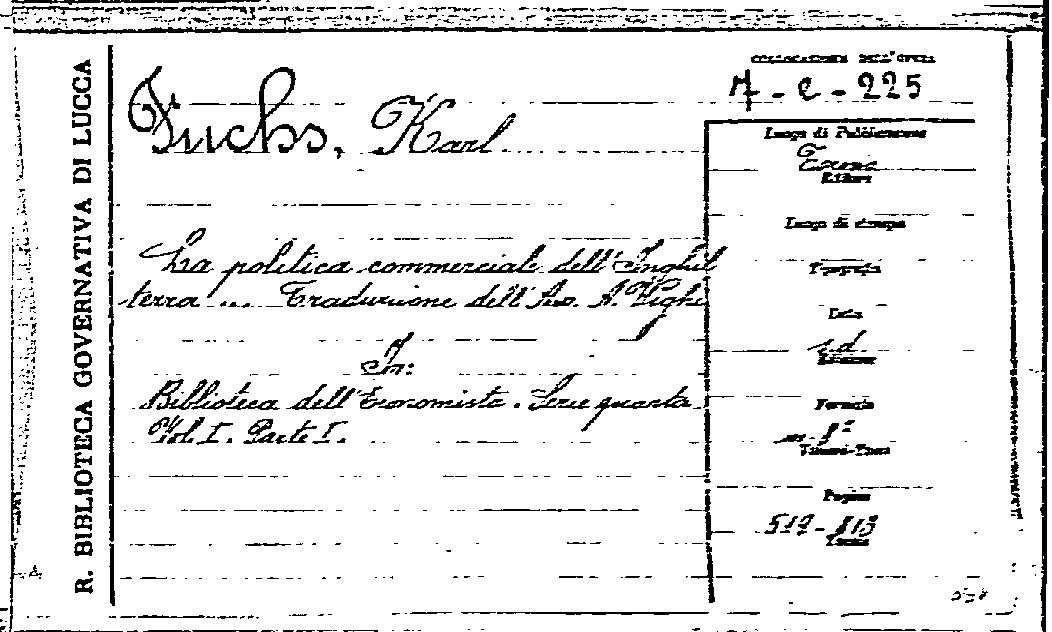 R. BIBLIOTECA GOVERNATIVA DI LUCCA
COLLOCAZIONE DELL'OPERA
7-C-225
Fuchs, Karl.
Luogo di Pubblicazione
Torino
Editore
Luogo di stampa
La politica commerciale dell'Inghil
terra ... Traduzione dell'Avv. A. Vighi
Tipografia
Data
s.d.
In:
Edizione
Biblioteca dell'Economista. Serie quarta
Vol. I. Parte I.
Formato
in-8º
Volumi-Tomi
Pagine
517-813